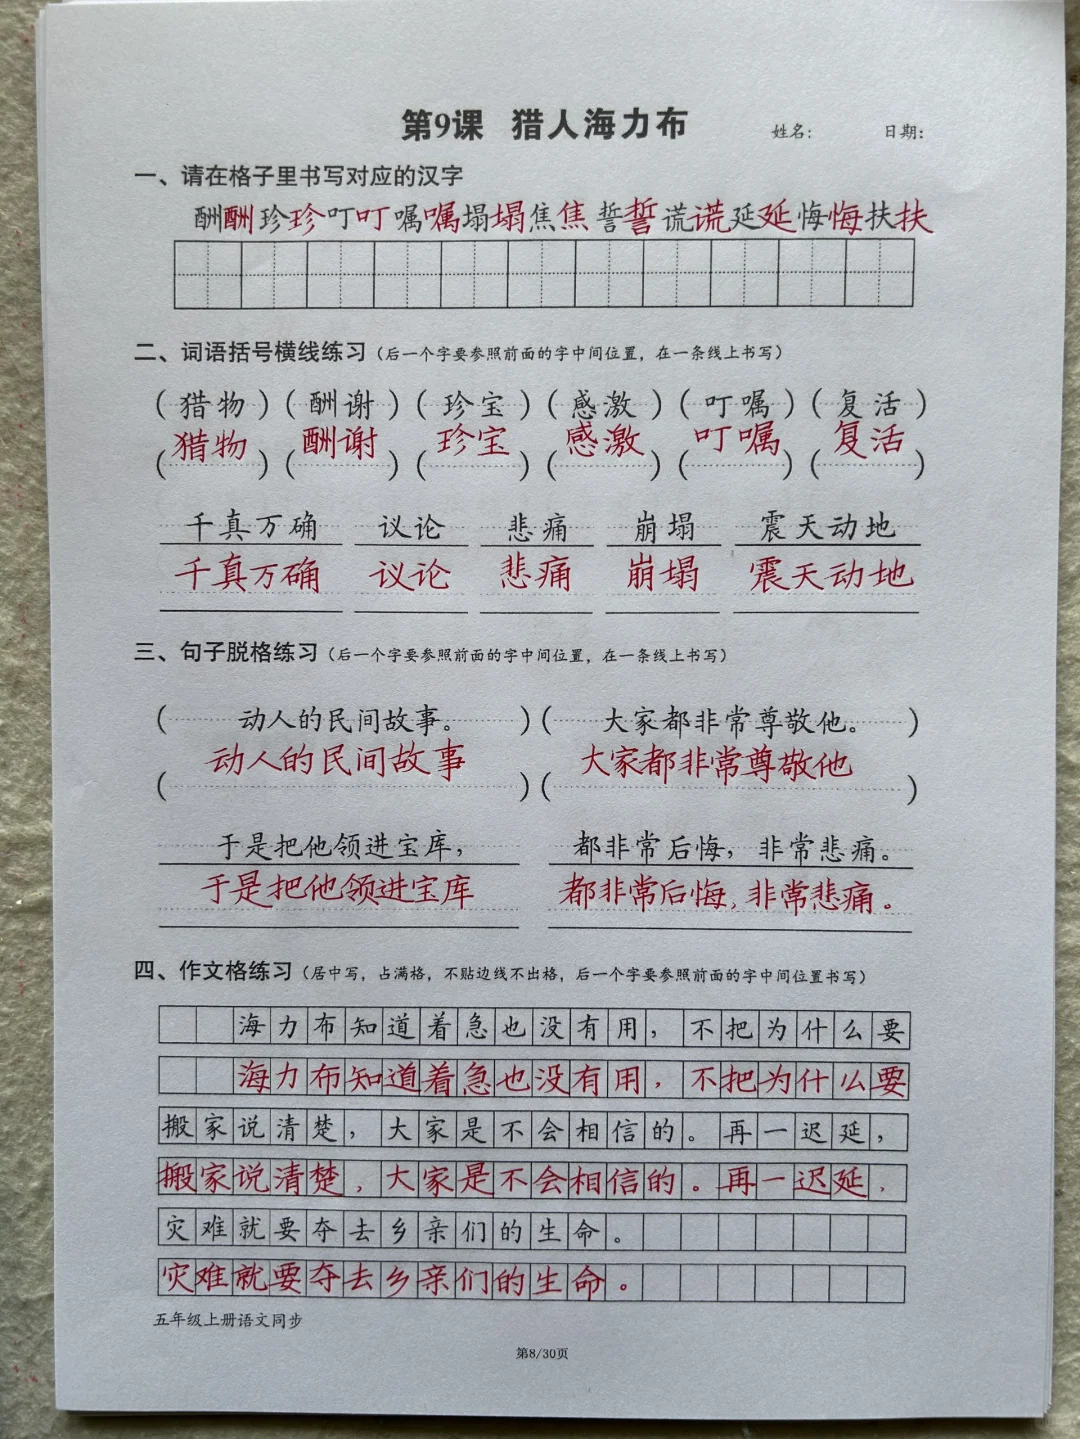 第9课 猎人海力布 姓名： 日期：
一、请在格子里书写对应的汉字
酬酬珍珍叮叮嘱嘱塌塌焦焦誓誓谎谎延延悔悔扶扶
二、词语括号横线练习（后一个字要参照前面的字中间位置，在一条线上书写）
（猎物）（酬谢）（珍宝）（感激）（叮嘱）（复活）
（猎物）（酬谢）（珍宝）（感激）（叮嘱）（复活）
千真万确 议论 悲痛 崩塌 震天动地
千真万确 议论 悲痛 崩塌 震天动地
三、句子脱格练习（后一个字要参照前面的字中间位置，在一条线上书写）
（动人的民间故事。）（大家都非常尊敬他。）
（动人的民间故事）（大家都非常尊敬他）
于是把他领进宝库， 都非常后悔，非常悲痛。
于是把他领进宝库 都非常后悔，非常悲痛。
四、作文格练习（居中写，占满格，不贴边线不出格，后一个字要参照前面的字中间位置书写）
海力布知道着急也没有用，不把为什么要
海力布知道着急也没有用，不把为什么要
搬家说清楚，大家是不会相信的。再一迟延，
搬家说清楚，大家是不会相信的。再一迟延，
灾难就要夺去乡亲们的生命。
灾难就要夺去乡亲们的生命。
五年级上册语文同步
第8/30页